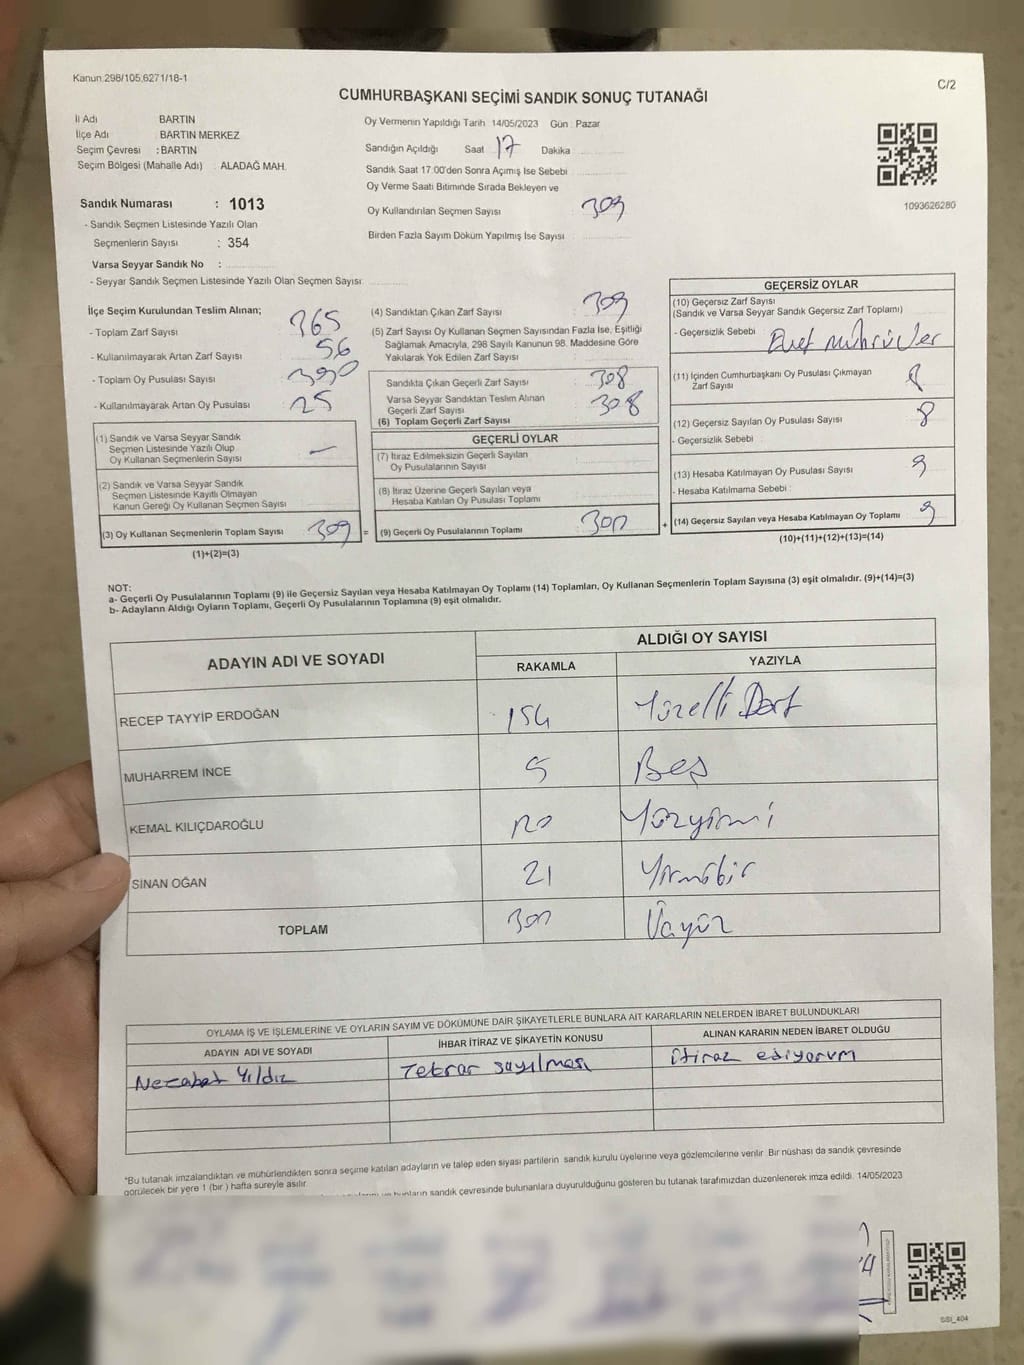 Kanun 298/105,6271/18-1
C/2
CUMHURBAŞKANI SEÇİMİ SANDIK SONUÇ TUTANAĞI
İl Adı BARTIN
İlçe Adı : BARTIN MERKEZ
Seçim Çevresi : BARTIN
Seçim Bölgesi (Mahalle Adı) : ALADAĞ MAH.
Sandık Numarası : 1013
- Sandık Seçmen Listesinde Yazılı Olan
Seçmenlerin Sayısı : 354
Varsa Seyyar Sandık No :
- Seyyar Sandık Seçmen Listesinde Yazılı Olan Seçmen Sayısı
Oy Vermenin Yapıldığı Tarih 14/05/2023 Gün : Pazar
Sandığın Açıldığı Saat 17 Dakika
Sandık Saat 17:00'den Sonra Açımış İse Sebebi
Oy Verme Saati Bitiminde Sırada Bekleyen ve
Oy Kullandırılan Seçmen Sayısı 309
Birden Fazla Sayım Döküm Yapılmış İse Sayısı
1093626280
İlçe Seçim Kurulundan Teslim Alınan;
- Toplam Zarf Sayısı 365
- Kullanılmayarak Artan Zarf Sayısı 56
- Toplam Oy Pusulası Sayısı 390
- Kullanılmayarak Artan Oy Pusulası 25
(1) Sandık ve Varsa Seyyar Sandık
Seçmen Listesinde Yazılı Olup
Oy Kullanan Seçmenlerin Sayısı —
(2) Sandık ve Varsa Seyyar Sandık
Seçmen Listesinde Kayıtlı Olmayan
Kanun Gereği Oy Kullanan Seçmen Sayısı
(3) Oy Kullanan Seçmenlerin Toplam Sayısı 309 =
(1)+(2)=(3)
(4) Sandıktan Çıkan Zarf Sayısı 309
(5) Zarf Sayısı Oy Kullanan Seçmen Sayısından Fazla İse, Eşitliği
Sağlamak Amacıyla, 298 Sayılı Kanunun 98. Maddesine Göre
Yakılarak Yok Edilen Zarf Sayısı
Sandıkta Çıkan Geçerli Zarf Sayısı 308
Varsa Seyyar Sandıktan Teslim Alınan
Geçerli Zarf Sayısı 308
(6) Toplam Geçerli Zarf Sayısı
GEÇERLİ OYLAR
(7) İtiraz Edilmeksizin Geçerli Sayılan
Oy Pusulalarının Sayısı
(8) İtiraz Üzerine Geçerli Sayılan veya
Hesaba Katılan Oy Pusulası Toplamı
(9) Geçerli Oy Pusulalarının Toplamı 300 +
GEÇERSİZ OYLAR
(10) Geçersiz Zarf Sayısı
(Sandık ve Varsa Seyyar Sandık Geçersiz Zarf Toplamı)
- Geçersizlik Sebebi Evet mühürüler
(11) İçinden Cumhurbaşkanı Oy Pusulası Çıkmayan
Zarf Sayısı
(12) Geçersiz Sayılan Oy Pusulası Sayısı 8
- Geçersizlik Sebebi :
(13) Hesaba Katılmayan Oy Pusulası Sayısı 9
- Hesaba Katılmama Sebebi :
(14) Geçersiz Sayılan veya Hesaba Katılmayan Oy Toplamı 9
(10)+(11)+(12)+(13)=(14)
NOT:
a- Geçerli Oy Pusulalarının Toplamı (9) ile Geçersiz Sayılan veya Hesaba Katılmayan Oy Toplamı (14) Toplamları, Oy Kullanan Seçmenlerin Toplam Sayısına (3) eşit olmalıdır. (9)+(14)=(3)
b- Adayların Aldığı Oyların Toplamı, Geçerli Oy Pusulalarının Toplamına (9) eşit olmalıdır.
ADAYIN ADI VE SOYADI ALDIĞI OY SAYISI
RAKAMLA YAZIYLA
RECEP TAYYİP ERDOĞAN 154 Yüzelli Dört
MUHARREM İNCE 5 Beş
KEMAL KILIÇDAROĞLU 120 Yüzyirmi
SİNAN OĞAN 21 Yirmibir
TOPLAM 300 Üçyüz
OYLAMA İŞ VE İŞLEMLERİNE VE OYLARIN SAYIM VE DÖKÜMÜNE DAİR ŞİKAYETLERLE BUNLARA AİT KARARLARIN NELERDEN İBARET BULUNDUKLARI
ADAYIN ADI VE SOYADI İHBAR İTİRAZ VE ŞİKAYETİN KONUSU ALINAN KARARIN NEDEN İBARET OLDUĞU
Necabat Yıldız Tekrar sayılması itiraz ediyorum
"Bu tutanak imzalandıktan ve mühürlendikten sonra seçime katılan adayların ve talep eden siyasi partilerin sandık kurulu üyelerine veya gözlemcilerine verilir. Bir nüshası da sandık çevresinde
görülecek bir yere 1 (bir ) hafta süreyle asılır.
sandık çevresinde bulunanlara duyurulduğunu gösteren bu tutanak tarafımızdan düzenlenerek imza edildi. 14/05/2023
SSI_404